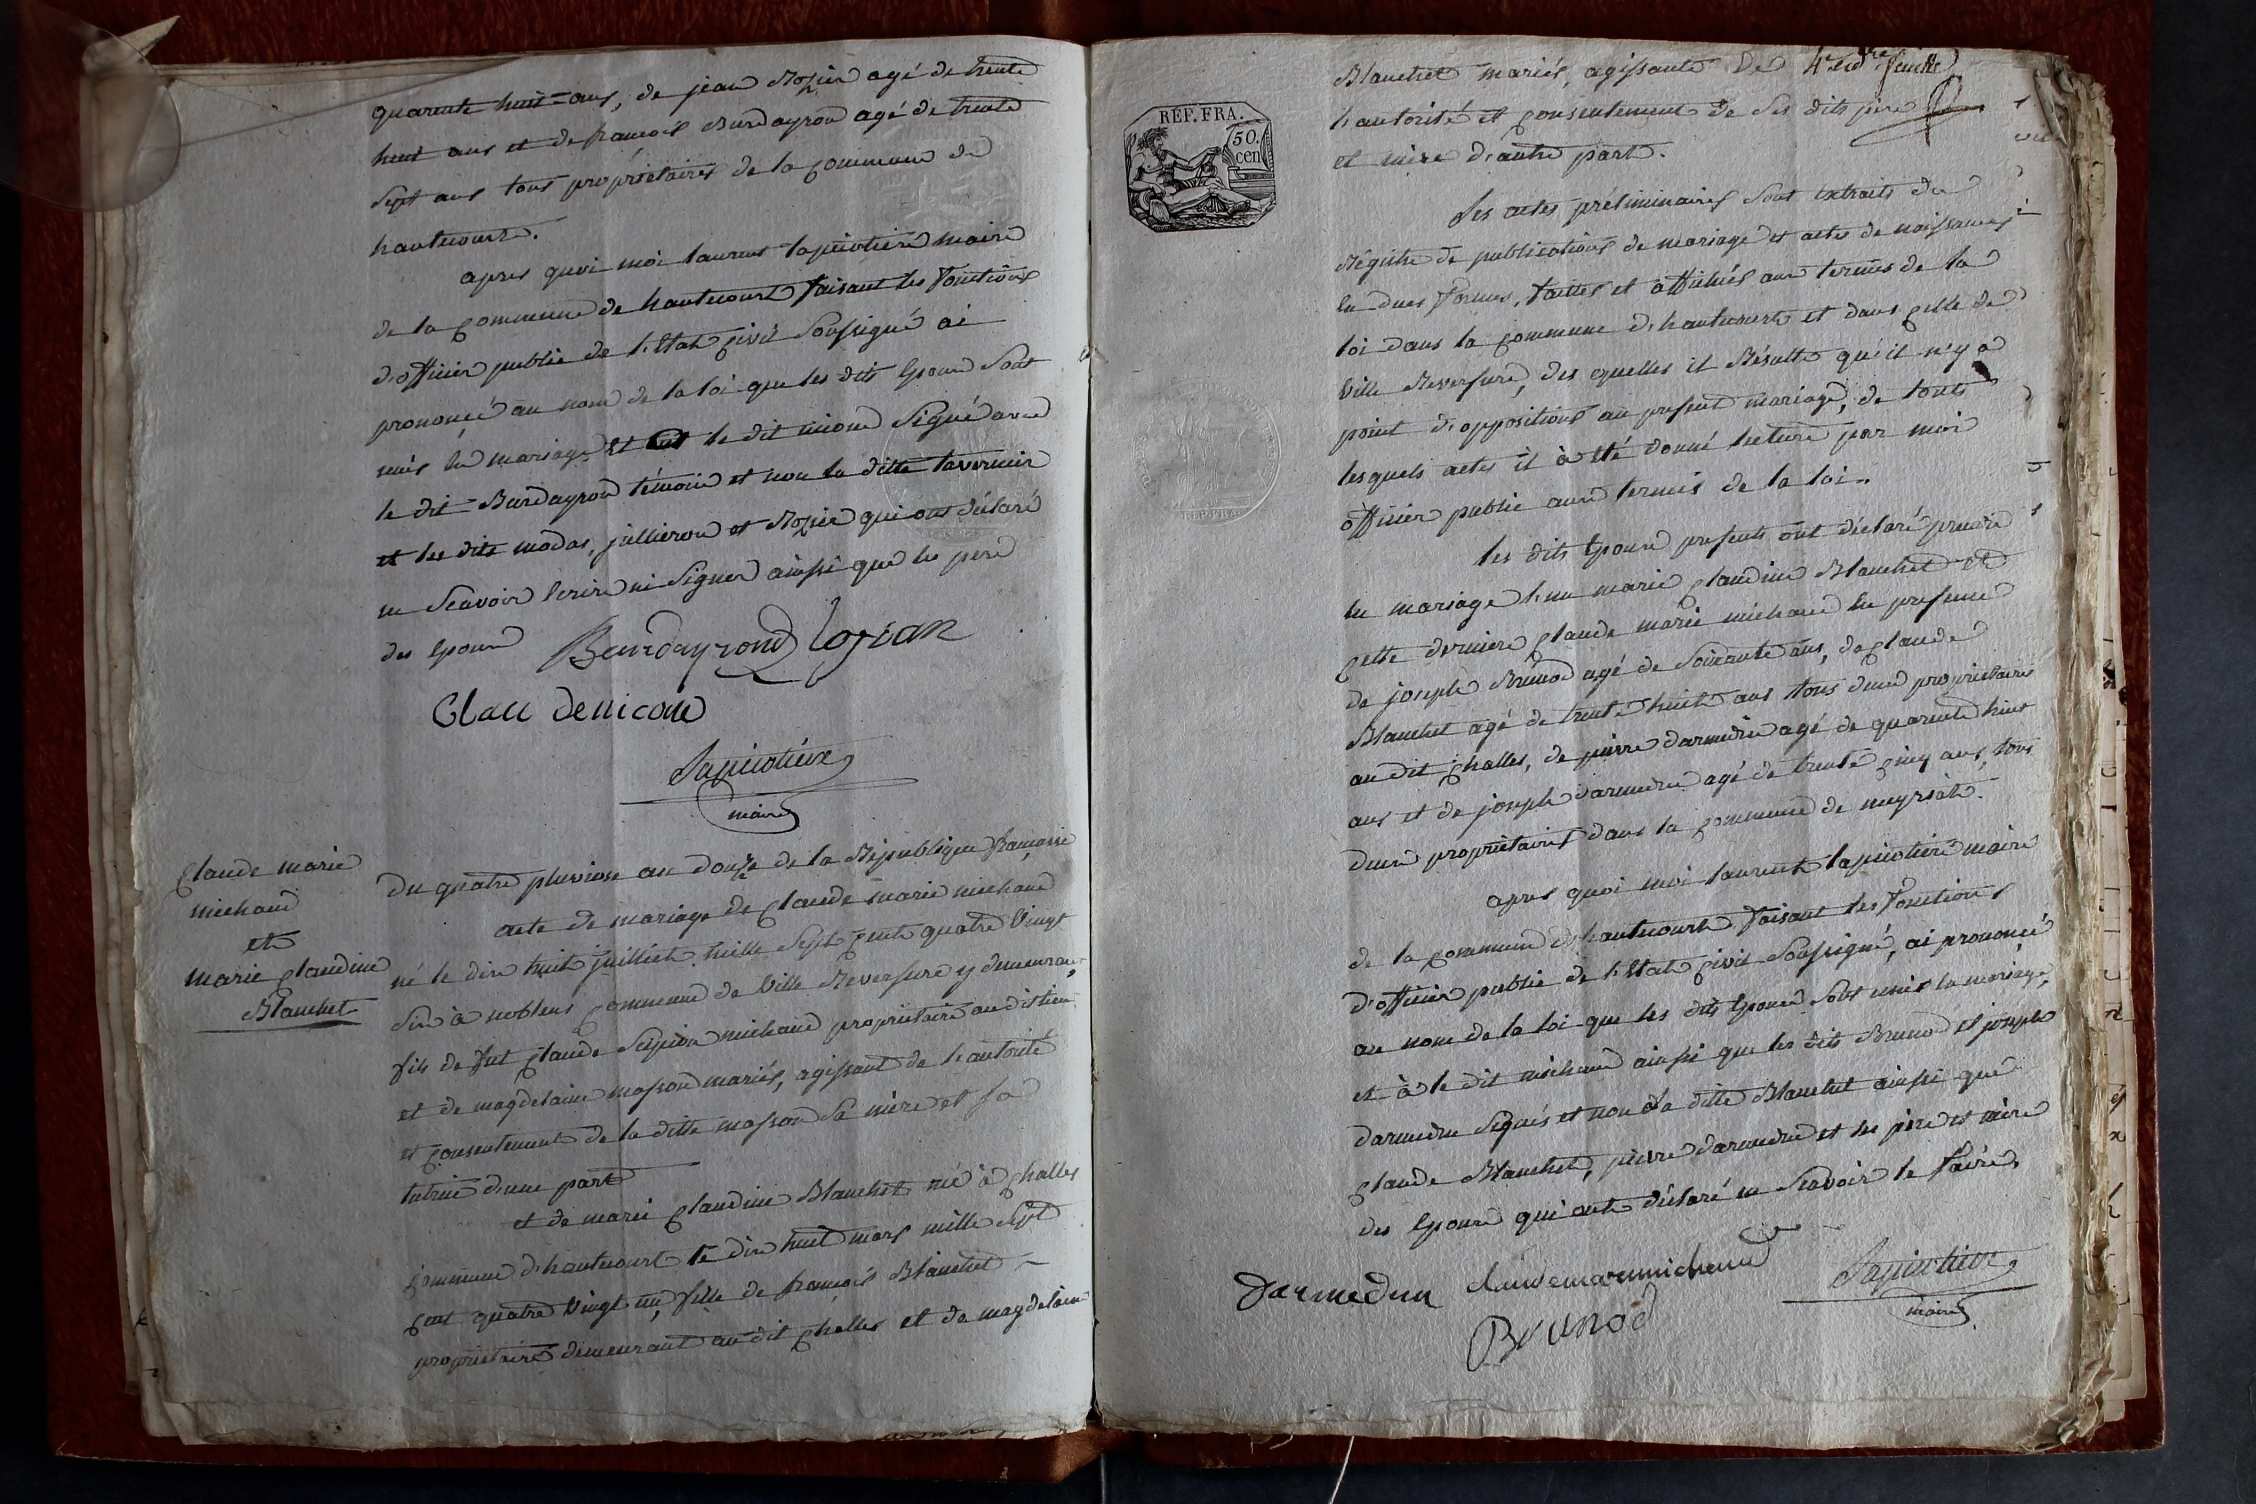 quarente huit ans, de jean Rozier agé de trente
huit ans et de françois Burdayron agé de trente
Sept ans tous propriétaires de la commune de
hautecourt.
apres quoi moi laurent lapicotiere maire
de la commune de hautecourt faisant les fonctions
d'officier public de l'Etat civil Soussigné ai
prononcé au nom de la loi que les dits Epoux Sont
unis en mariage Et ont le dit nicoud Signé avec
le dit Burdayron témoin et non la ditte tavernier
et les dits modas, jullieron et Rozier qui ont déclaré
ne Scavoir Ecrire ni Signer ainssi que les pere
des Epoux Burdayrond
Clau denicoud
Lapicotiere
maire
Claude marie
michaud
et
marie claudine
Blanchet
Du quatre pluviose an douze de la République française
acte de mariage de Claude marie michaud
né le dix huit juilliet mille Sept cent quatre Vingt
Six à noblens commune de Ville Reverssure y demeurant
fils de fut Claude Scipion michaud propriétaire au dit lieu
et de magdelaine masson mariés, agissant de l'autorité
et consentement de la ditte masson Sa mère et Sa
tutrice d'une part
et de marie Claudine Blanchet née à challes
commune d'hautecourt le dix huit mars mille Sept
cent quatre Vingt un, fille de françois Blanchet
propriétaire demeurant au dit challes et de magdelaine
REP. FRA.
50.
cen
4e et dre feuille
Blanchet mariés, agissante De
l'autorité et consentement de Ses dits père
et mère d'autre part.
Les actes préliminaires Sont extraits du
Régistre de publications de mariage et actes de naissances
En dues formes, faittes et affichés aux termes de la
loi dans la commune d'hautecourt et dans celle de
Ville Reverssure, des quelles il Résulte qu'il n'y a
point d'oppositions au present mariage, de touts
lesquels actes il à été donné lecture par moi
officier public aux termes de la loi.
les dits Epoux presents ont déclaré prendre
En mariage l'un marie Claudine Blanchet et
cette derniere Claude marie michaud En presence
de joseph Brunod agé de Soixante ans, de Claude
Blanchet agé de trente huit ans tous deux propriétaires
au dit challes, de pierre darmedru agé de quarente huit
ans et de joseph darmedru agé de trente cinq ans, tous
deux propriétaires dans la commune de meyriat.
apres quoi moi laurent lapicotiere maire
de la commune d'hautecourt faisant les fonctions
d'officier public de l'Etat civil Soussigné, ai prononcé
au nom de la loi que les dits Epoux Sont unis En mariage,
et à le dit michaud ainssi que les dits Brunod et joseph
darmedru Signés et non la ditte Blanchet ainssi que
Claude Blanchet, pierre darmedru et les père et mère
des Epoux qui onts déclaré ne Scavoir le faire.
darmedru claudemariemichaud Lapicotiere
maire
Brunod